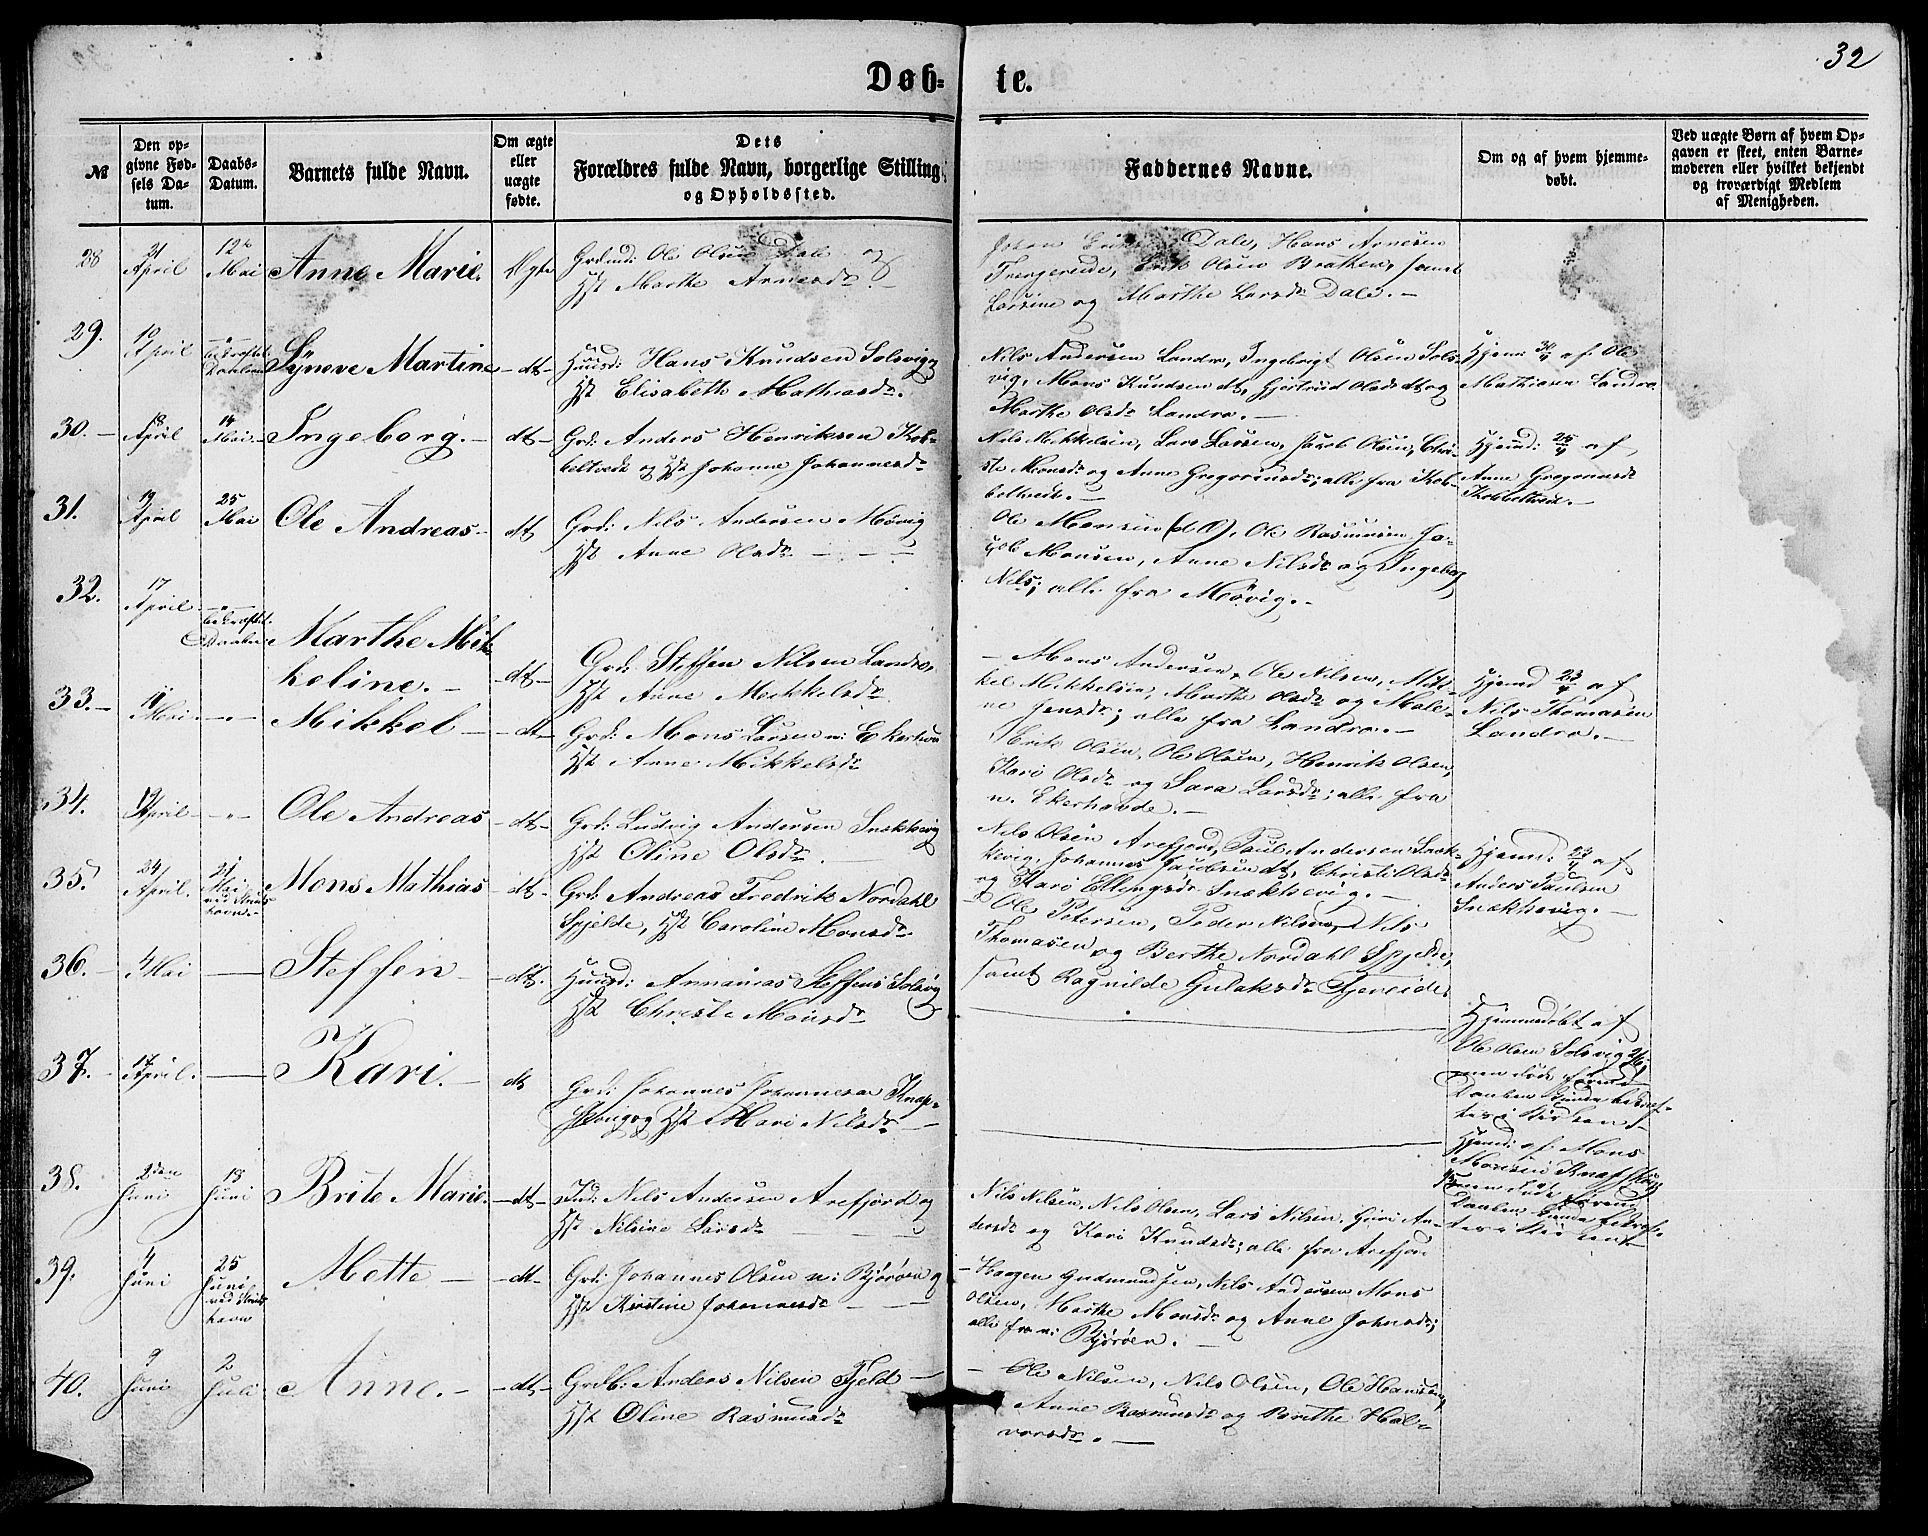 32
Døb- te.
№
Den op-
givne Fød-
sels Da-
tum.
Daabs-
Datum.
Barnets fulde Navn.
Om ægte
eller
uægte
fødte.
Dets
Forældres fulde Navn, borgerlige Stilling
og Opholdssted.
Faddernes Navne.
Om og af hvem hjemme-
døbt.
Ved uægte Børn af hvem Op-
gaven er skeet, enten Barne-
moderen eller hvilket bekjendt
og troværdigt Medlem
af Menigheden.
28
21 April
12te Mai
Anne Marie.
Ægte
Grdmd: Ole Olsen Dale og
Hst Marthe Arnesdr
Dale, Hans Arnesen
Erik Olsen Bråthen, samt
Larsine og Marthe Larsdr Dale. -
29.
10 April
Syneve Martine
- dt -
Huusd: Hans Knudsen Solsvig og
Hst Elisabeth Mathiasdr.
Nils Andersen Landro, Ingebrigt Olsen Sols-
vig, Mons Knudsen dt, Gjertrud Olsdr dt og
Marthe Olsdr Landro. -
Hjemd: 30/4 af Ole
Mathiasen Landro
30. -
18 April
14 Mai. -
Ingeborg. -
dt -
Grd: Anders Henriksen Kob-
beltvedt og Hst Johanne Johannesdr
Nils Mikkelsen, Lars Larsen, Jacob Olsen, Chri-
ste Monsdr og Anne Gregoriusdr; alle fra Kob-
beltvedt. -
Hjemd: 25/4 af
Anne Gregoriusdr
Kobbeltvedt. -
31.
19 April
25 Mai
Ole Andreas -
dt
Grd: Nils Andersen Møvig
Hst Anne Olsdr - - -
Ole Monsen (d. Æ), Ole Rasmusen, Ja-
cob Monsen, Anne Nilsdr og Ingeborg
Nilsdr; alle fra Møvig. -
32.
17 April
- " -
bekræftet
Daaben
Marthe Mik-
keline. -
- dt -
Grd: Steffen Nilsen Landro,
Hst Anne Mikkelsdr
- Mons Andersen, Ole Nilsen, Mik-
kel Mikkelsen, Marthe Olsdr og Male-
ne Jensdr; alle fra Landro. -
Hjemd 23/4 af
Nils Thomasen
Landro. -
33. -
11 Mai
- " -
Mikkel -
- dt -
Grd: Mons Larsen n: Ekerhovd
Hst Anne Mikkelsdr
Erik Olsen, Ole Olsen, Henrik Olsen,
Kari Olsdr og Sara Larsdr; alle fra
n. Ekerhovde. -
34.
19 April
- " -
Ole Andreas
- dt -
Grd: Ludvig Andersen Snekkevig
Hst Oline Olsdr.
Nils Olsen Arefjord, Paul Andersen Snek-
kevig, Johannes Jacobsen dt, Christi Olsdr
og Kari Ellingsdr Snekkevig. -
Hjemd: 23/4 af
Anders Paulsen
Snekkevig. -
35.
24 April.
21 Mai
Mons Mathias
dt -
Grd: Andreas Fredrik Nordahl
Spjelde, Hst Caroline Monsdr
- Ole Petersen, Peder Nilsen, Nils
Thomasen og Berthe Nordahl Spjelde,
samt Ragnilde Gulaksdr Tjeneide.
36. -
4 Mai
Steffen
- dt -
Huusd: Annanias Steffens Solsvig
Hst Christi Monsdr
Hjemmedøbt af
Ole Olsen Solsvig
men døde førend
Daaben kunde bekræf-
tes i Kirken. -
37. -
17 April.
Kari. -
dt
Grd: Johannes Johannesen Knap-
skoug og Hst Mari Nilsdr -
Hjemd: af Mons
Monsen Knapskoug
men døde førend
Daaben kunde bekræf-
tes i Kirken
38.
2den Juni
18 Juni
Brite Marie.
- dt -
Ind: Nils Andersen Arefjord og
Hst Nilsine Larsdr
Nils Nilsen, Nils Olsen, Lars Nilsen, Guri An-
dersdr og Kari Knudsdr; alle fra Arefjord
39.
4 Juni
25 Juni
Mette -
- dt -
Grd: Johannes Olsen n: Bjorøen og
Hst Kirstine Johannesdr - - -
- Haagen Gudmundsen, Nils Andersen, Mons
Olsen, Marthe Monsdr og Anne Johnsdr;
alle fra n: Bjorøen. -
40.
9 Juni
2 Juli
Anne. -
- dt -
Grdb: Anders Nilsen Fjeld -
Hst Oline Rasmusdr
- Ole Nilsen, Nils Olsen, Ole Hansen,
Anne Rasmusdr og Brithe Hal-
vorsdr. -